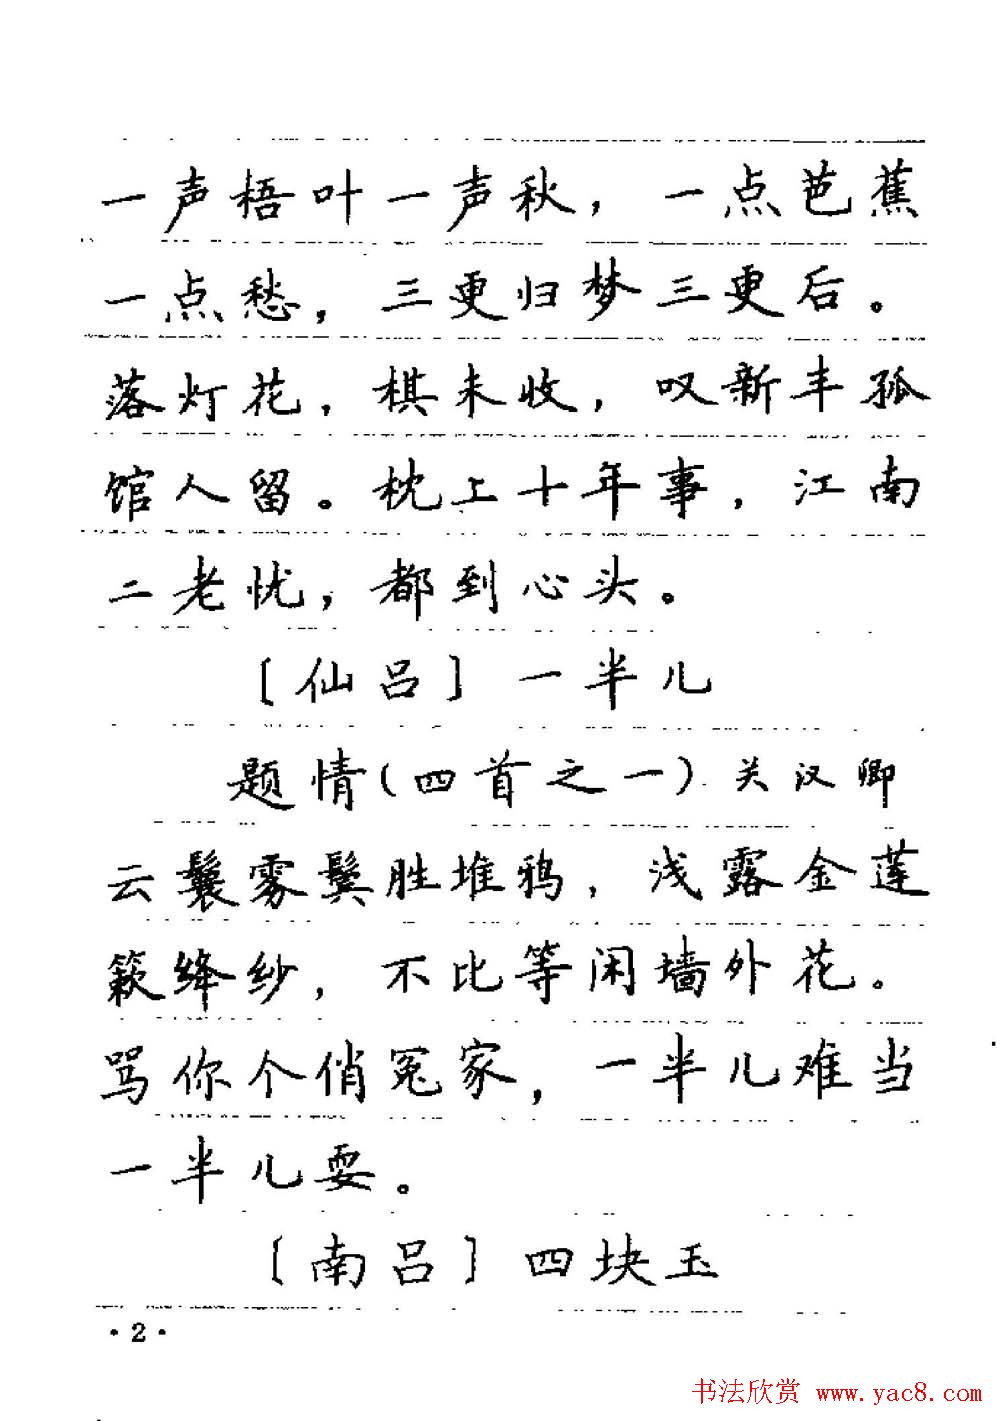 一声梧叶一声秋，一点芭蕉
一点愁，三更归梦三更后。
落灯花，棋未收，叹新丰孤
馆人留。枕上十年事，江南
二老忧，都到心头。
［仙吕］一半儿
题情(四首之一) 关汉卿
云鬟雾鬓胜堆鸦，浅露金莲
簌绛纱，不比等闲墙外花。
骂你个俏冤家，一半儿难当
一半儿耍。
［南吕］四块玉
·2·
书法欣赏 www.yac8.com